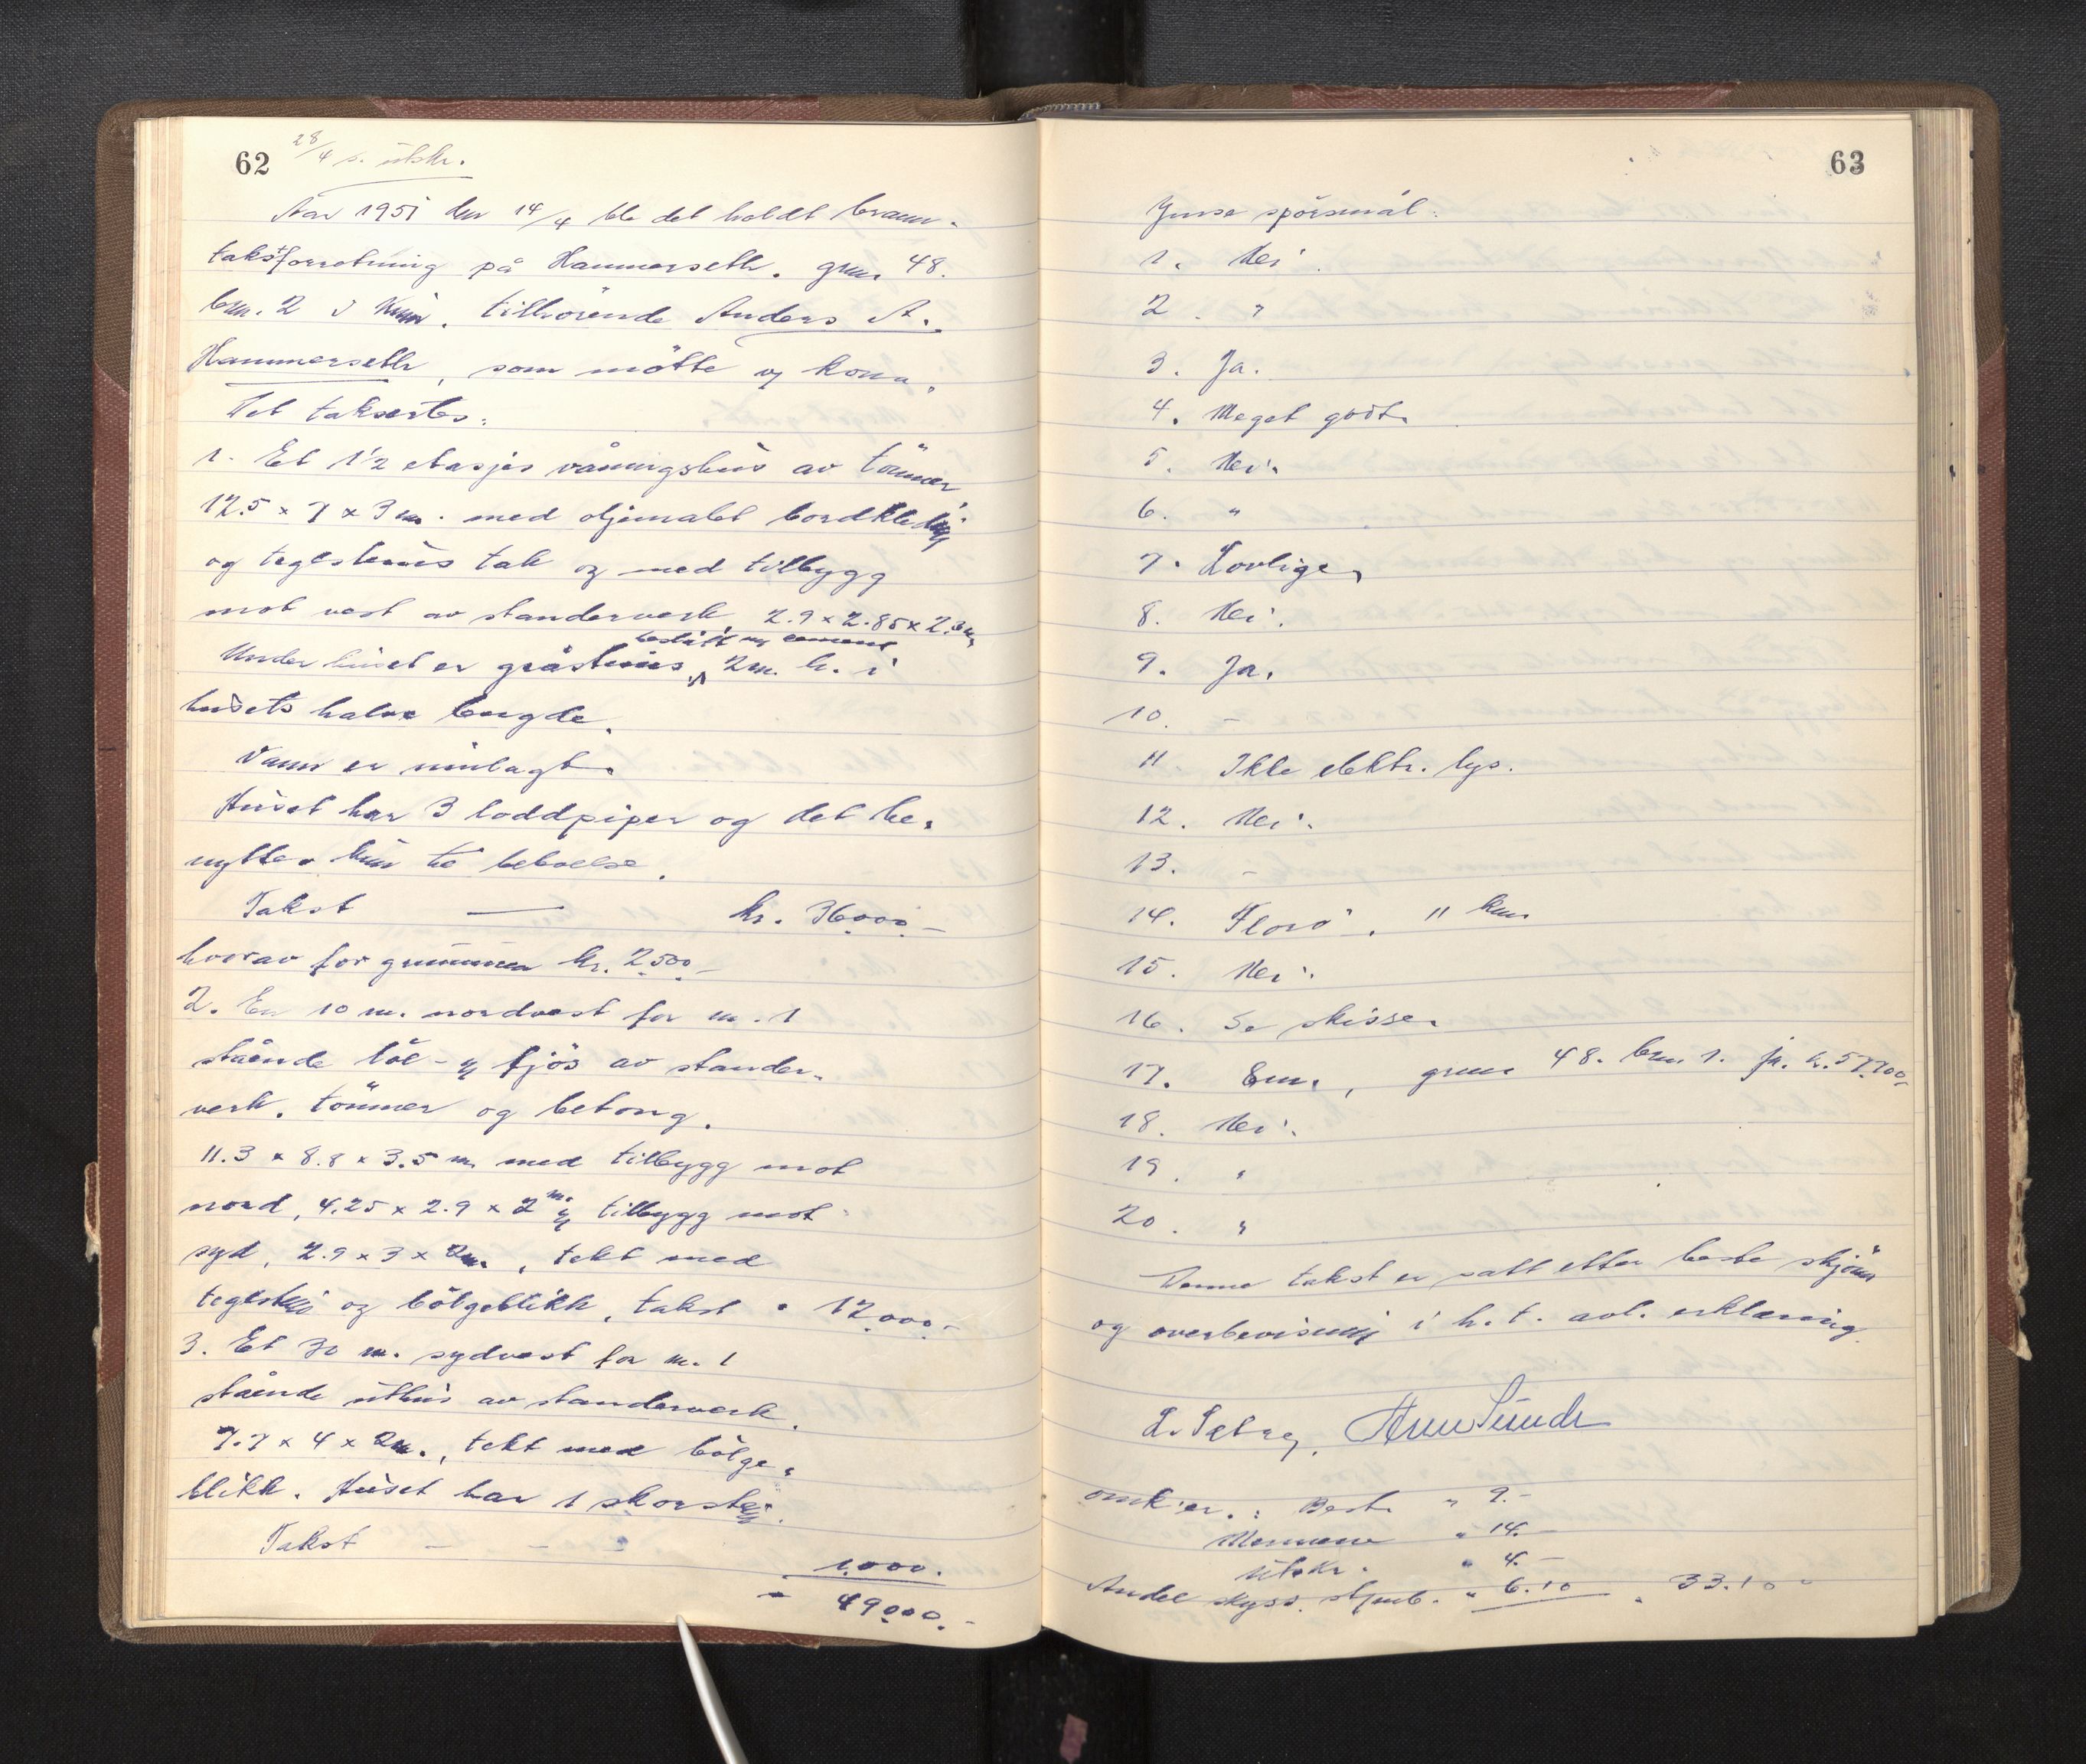 62
28/4 s. utskr.
Aar 1951 den 14/4 ble det holdt brann-
takstforretning på Hammerseth. gnr. 48.
bnr. 2 i Kinn, tilhørende Anders A.
Hammerseth, som møtte og kona.
Det taksertes:
1. Et 1½ etasjes våningshus av tömmer
12.5 x 7 x 3 m. med oljemalet bordkledning
og taglsteins tak og med tilbygg
mot vest av standerverk, 2.9 x 2.85 x 2.3 m.
beslått m cement
Under huset er gråsteins 2 m. h. i
husets halve lengde.
Vann er innlagt.
Huset har 3 loddpiper og det be-
nyttes kun til beboelse.
Takst — kr. 36000.-
hvorav for grunnmuren kr. 2500.-
2. En 10 m. nordvest for nr. 1
stående löe- og fjös av stander-
verk, tömmer og betong.
11.3 x 8.8 x 3.5 m. med tilbygg mot
nord, 4.25 x 2.9 x 2 m. og tilbygg mot
syd, 2.9 x 3 x 2 m., tekt med
teglstein og bölgeblikk, takst " 12000.-
3. Et 30 m. sydvest for nr. 1
stående uthus av standerverk.
7.7 x 4 x 2 m., tekt med bölge-
blikk. Huset har 1 skorstein.
Takst - - - 1000.
" 49000.-
63
Jmse spörsmål:
1. Nei.
2. "
3. Ja.
4. Meget godt.
5. Nei.
6. "
7. Lovlige.
8. Nei.
9. Ja.
10. -
11 Ikke elektr. lys.
12. Nei.
13. -
14. Florö, 11 km
15. Nei.
16. Se skisse.
17. En., gnr 48. bnr 1. fr. k. 57700.-
18. Nei.
19. "
20. "
Denne takst er satt etter beste skjönn
og overbevisning i h. t. avl. erklæring.
L. Sæbrey, Arne Sunde
omk'er.: Best. " 9.-
Mennene " 14.-
Utskr. " 4.-
Andel skyss " 6.10 " 33.10